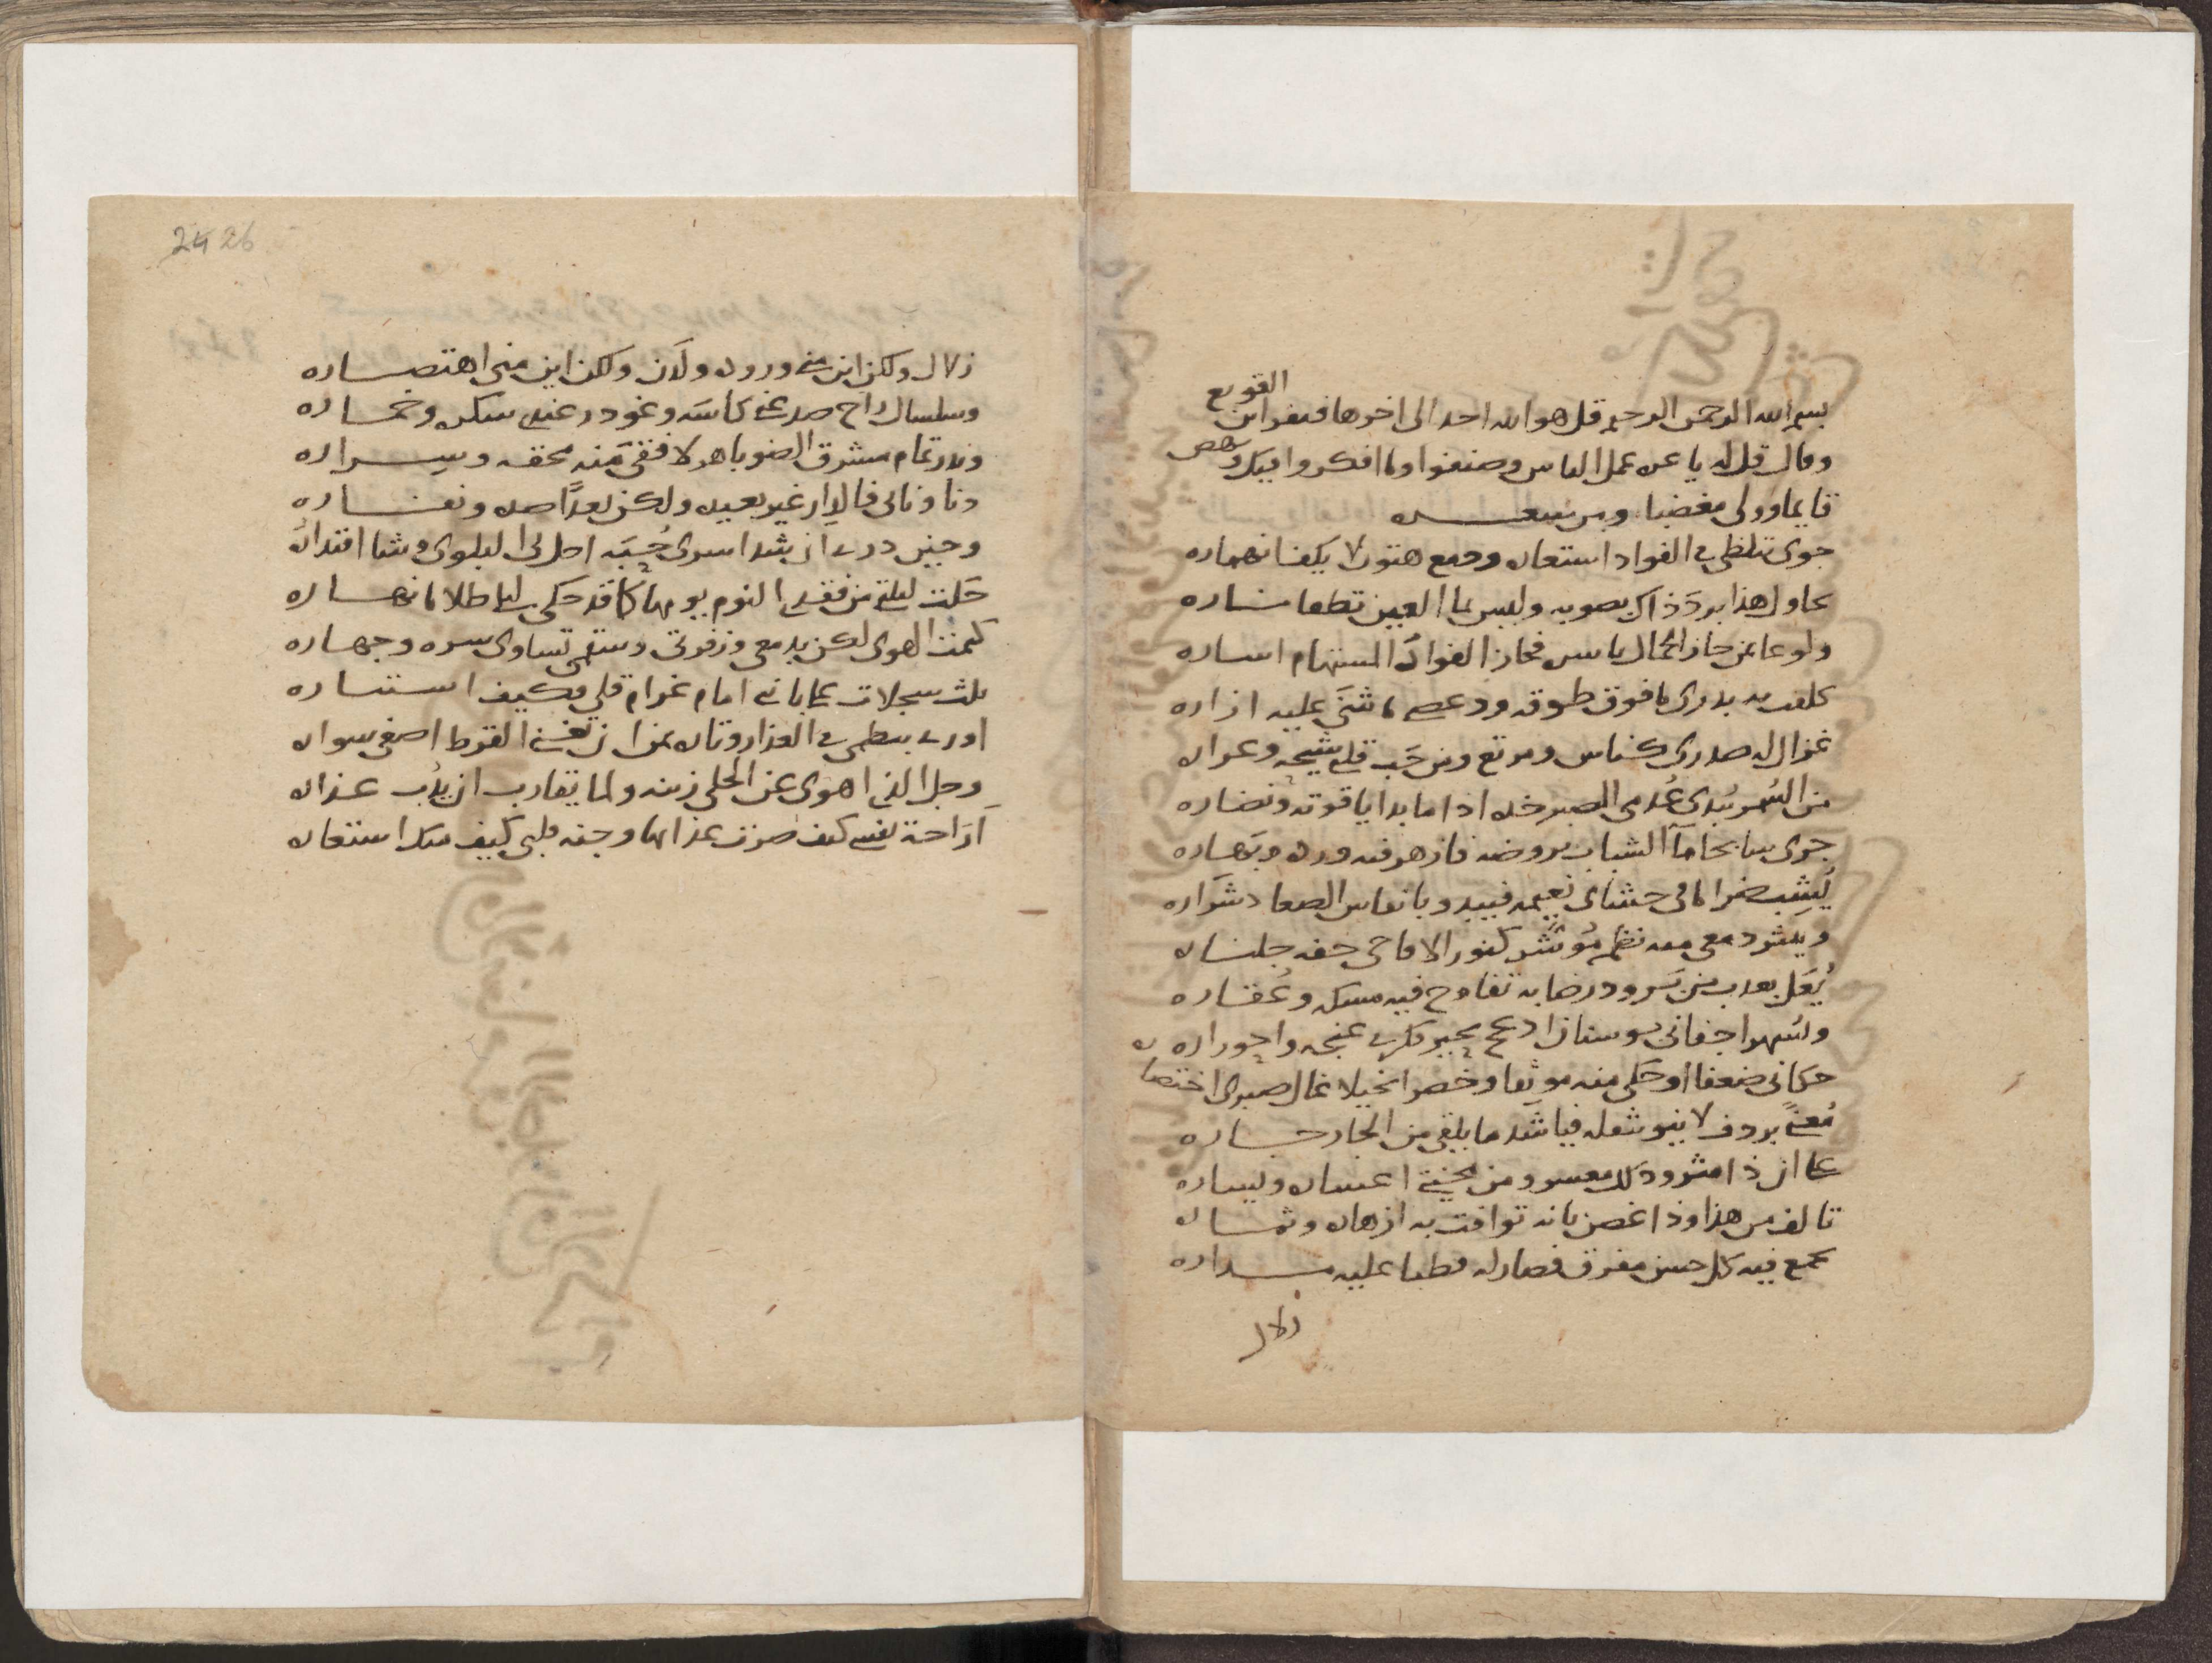 القويع
بسم الله الرحمن الرحيم قل هو الله احد الى اخرها فنفر ابن
وقال قل له يا عن عمل الناس وصنفوا وما افكروا فيك وهص
قايما وولى مغضبا ومن شعره
جوى تلظى فى الفواد استعاره ودمع هتون لا يكف انهماره
يحاول هذا برد ذاك بصوبه وليس بما العين تطفا ناره
ولوعا بمن حاز الجمال باسره فحاز الفواد المستهام اساره
كلفت به بدرى ما فوق طوقه ودعصى ما ثنى عليه ازاره
غزال له صدرى كناس ومرتع ومن حب قلبى شيحه وعراره
من السمر يبدى عدمى الصبر خده اذا ما بدا ياقوته ونضاره
جرى سابحا ماء الشباب بروضه فازهر فيه ورده وبهاره
يشب ضراما فى حشاى نعيمه فيبدو بانفاس الصعاد شراره
وينثر دمعى منه نظم موشر كنور الاقاحى حفه جلناره
يعل بعذب من برود رضابه تفاوح فيه مسكه وعقاره
ويسهر اجفانى بوسنان ادعج يحير فكرى غنجه واحوراره
حكانى ضعفا او حكى منه موثقا وخصرا نحيلا غال صبرى اختصاره
معنى بردف لا ينو بثقله فيا شد ما يلقى من الجار جاره
على ان ذا مثر وذلك معسر ومن محنتى اعساره ويساره
تالف من هذا وذا غصن بانه توافت به ازهاره وثماره
تجمع فيه كل حسن مفرق فصار له قطبا عليه مداره
زلال
24 26
زلال ولكن اين منى وروده ولدن ولكن اين منى اهتصاره
وسلسال راح صد عنى كاسه وغودر عندى سكره وخماره
وبدر تمام مشرق الضو باهر لافقى منه محقه وسراره
دنا ونانى فالدار غير بعيده ولكن بعدا صده ونفاره
وحين درى ان شد اسرى حبه احل بى البلوى وشا اقتداره
حكت ليلتى من فقدى النوم يومها كما قد حكى ليلى ظلاما نهاره
كتمت الهوى لكن بدمعى وزفرتى وسقمى تساوى سره وجهاره
ثلث سجلات على بانى امام غرام قلى فكيف استتاره
اورى بنظمى فى العذار وتاره بمن ان تغنى القرط اصغى سواره
وجل الذى اهوى عن الحلى زينه ولما يقارب ان يدب عذاره
اراحة نفسى كيف صرت عذابها وجنه قلبى كيف منك استعاره